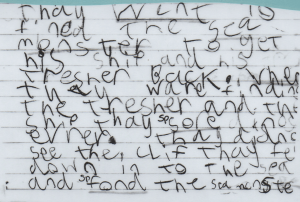 Thay went to
find the sea
monster to get
his ship and his
tresher back. Whe
thay ward findin
the tresher and the
ship thay
see the clif that
down in to the
and fond the sea monste